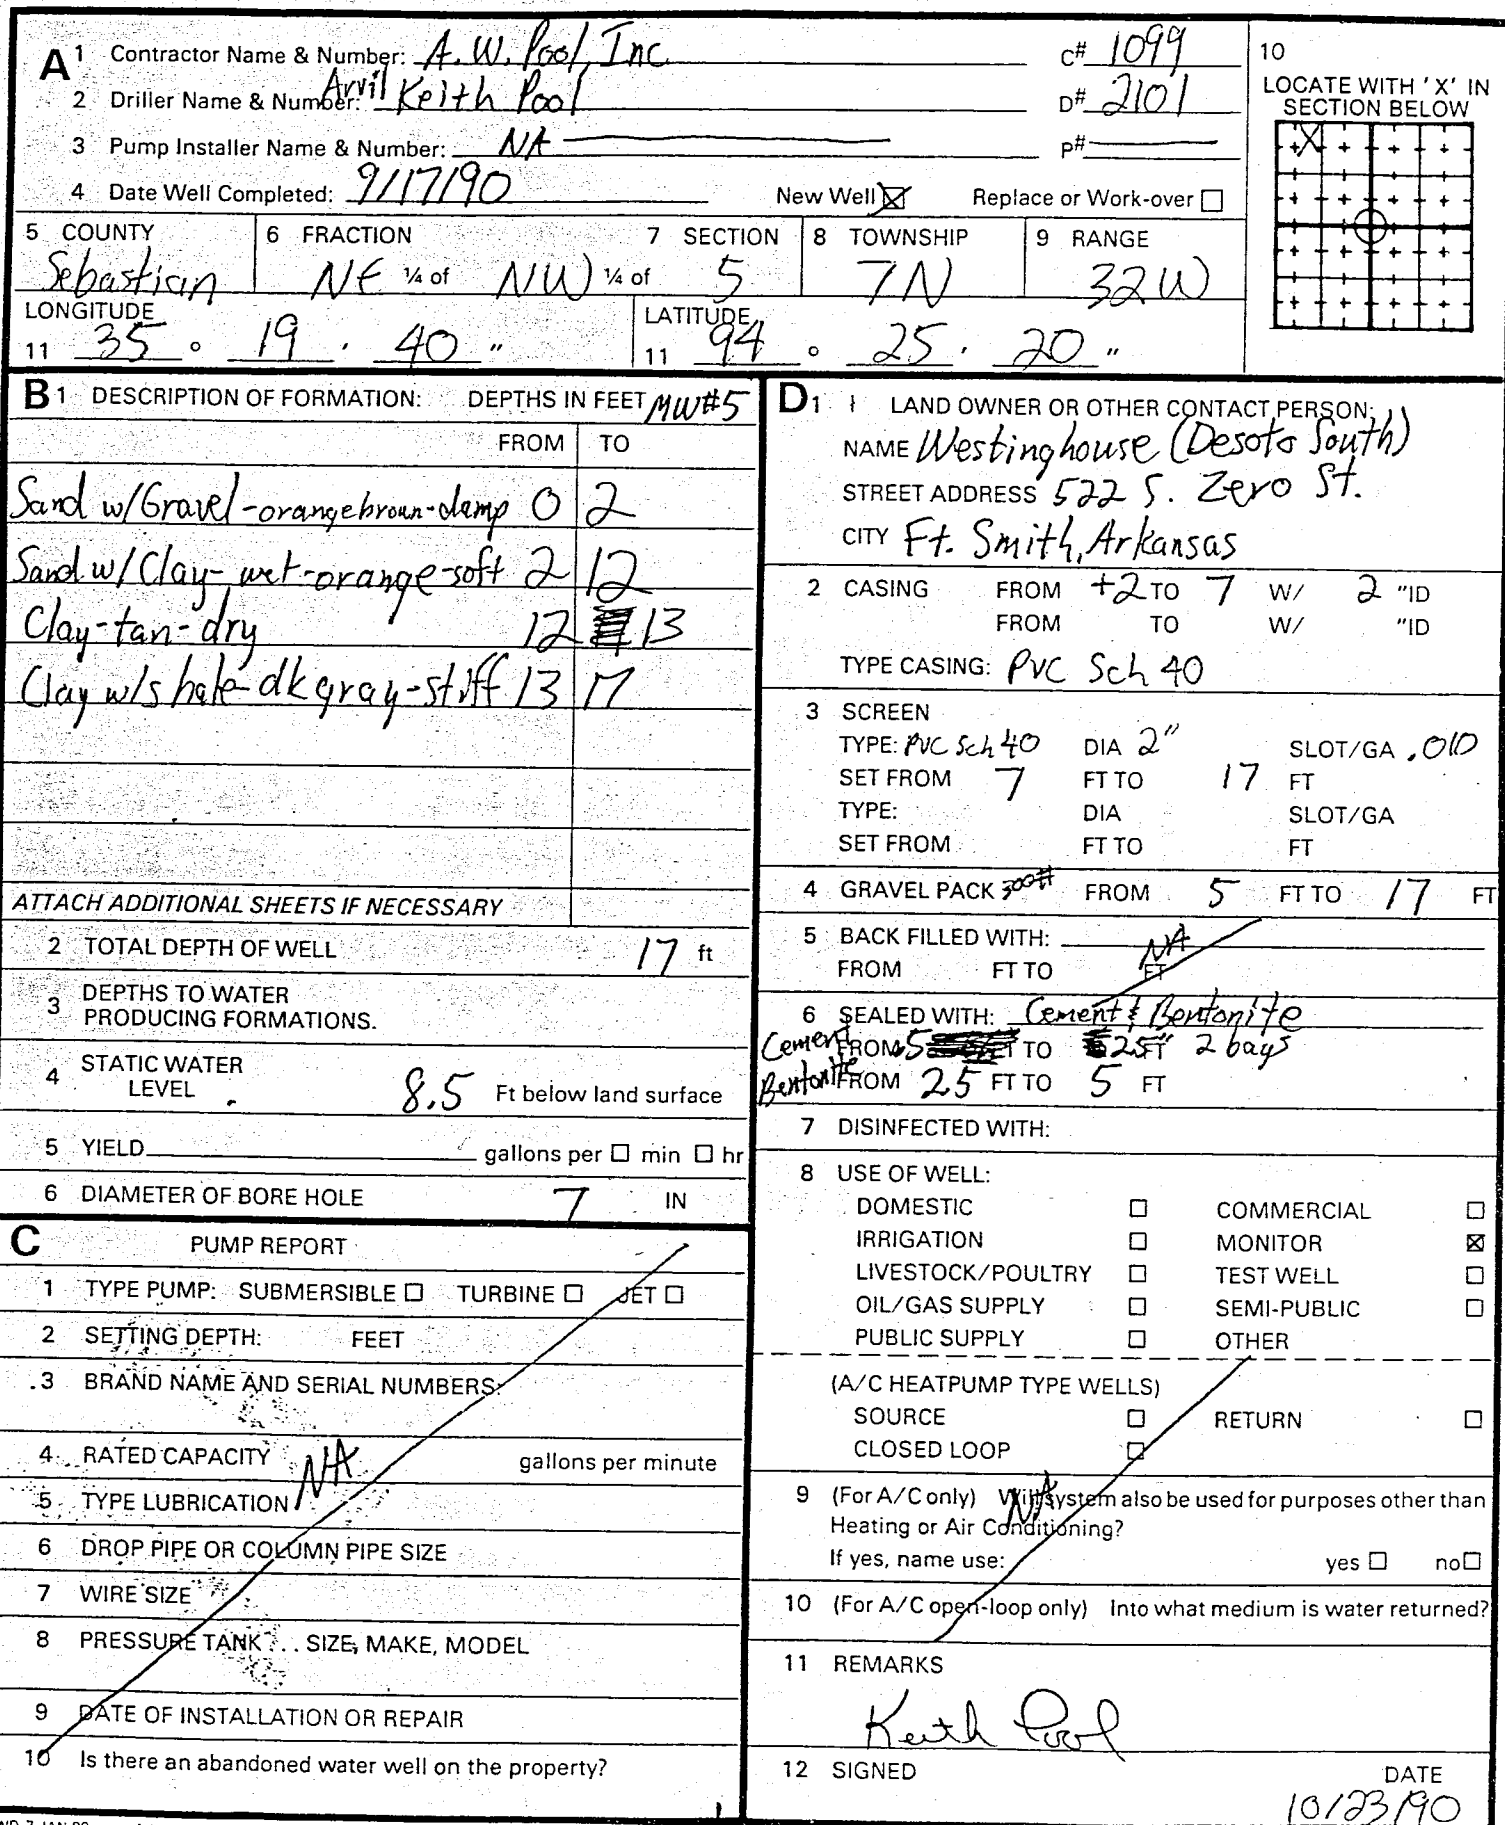 A 1 Contractor Name & Number: A.W. Pool, Inc C# 1099
2 Driller Name & Number: Arvil Keith Pool D# 2101
3 Pump Installer Name & Number: NA P#
4 Date Well Completed: 9/17/90 New Well ☒ Replace or Work-over ☐
10
LOCATE WITH 'X' IN
SECTION BELOW
X
5 COUNTY 6 FRACTION 7 SECTION 8 TOWNSHIP 9 RANGE
Sebastian NE ¼ of NW ¼ of 5 7N 32W
LONGITUDE LATITUDE
11 35 ° 19 ' 40 " 11 94 ° 25 ' 20 "
B 1 DESCRIPTION OF FORMATION: DEPTHS IN FEET MW#5
FROM TO
Sand w/Gravel-orangebroun-damp 0 2
Sand w/Clay-wet-orange-soft 2 12
Clay-tan-dry 12 13
Clay w/shale-dkgray-stiff 13 17
ATTACH ADDITIONAL SHEETS IF NECESSARY
2 TOTAL DEPTH OF WELL 17 ft
3 DEPTHS TO WATER
PRODUCING FORMATIONS.
4 STATIC WATER
LEVEL 8.5 Ft below land surface
5 YIELD gallons per ☐ min ☐ hr
6 DIAMETER OF BORE HOLE 7 IN
C PUMP REPORT
1 TYPE PUMP: SUBMERSIBLE ☐ TURBINE ☐ JET ☐
2 SETTING DEPTH: FEET
3 BRAND NAME AND SERIAL NUMBERS:
4 RATED CAPACITY NA gallons per minute
5 TYPE LUBRICATION
6 DROP PIPE OR COLUMN PIPE SIZE
7 WIRE SIZE
8 PRESSURE TANK . . . SIZE, MAKE, MODEL
9 DATE OF INSTALLATION OR REPAIR
10 Is there an abandoned water well on the property?
D 1 LAND OWNER OR OTHER CONTACT PERSON:
NAME Westinghouse (Desoto South)
STREET ADDRESS 522 S. Zero St.
CITY Ft. Smith, Arkansas
2 CASING FROM +2 TO 7 W/ 2 "ID
FROM TO W/ "ID
TYPE CASING: PVC Sch 40
3 SCREEN
TYPE: PVC Sch 40 DIA 2" SLOT/GA .010
SET FROM 7 FT TO 17 FT
TYPE: DIA SLOT/GA
SET FROM FT TO FT
4 GRAVEL PACK 300# FROM 5 FT TO 17 FT
5 BACK FILLED WITH: NA
FROM FT TO FT
6 SEALED WITH: Cement & Bentonite
Cement FROM .5 FT TO 2.5 FT 2 bags
Bentonite FROM 2.5 FT TO 5 FT
7 DISINFECTED WITH:
8 USE OF WELL:
DOMESTIC ☐ COMMERCIAL ☐
IRRIGATION ☐ MONITOR ☒
LIVESTOCK/POULTRY ☐ TEST WELL ☐
OIL/GAS SUPPLY ☐ SEMI-PUBLIC ☐
PUBLIC SUPPLY ☐ OTHER
(A/C HEATPUMP TYPE WELLS)
SOURCE ☐ RETURN ☐
CLOSED LOOP ☐
9 (For A/C only) Will system also be used for purposes other than
Heating or Air Conditioning? NA
If yes, name use: yes ☐ no ☐
10 (For A/C open-loop only) Into what medium is water returned?
11 REMARKS
Keith Pool
12 SIGNED DATE
10/23/90